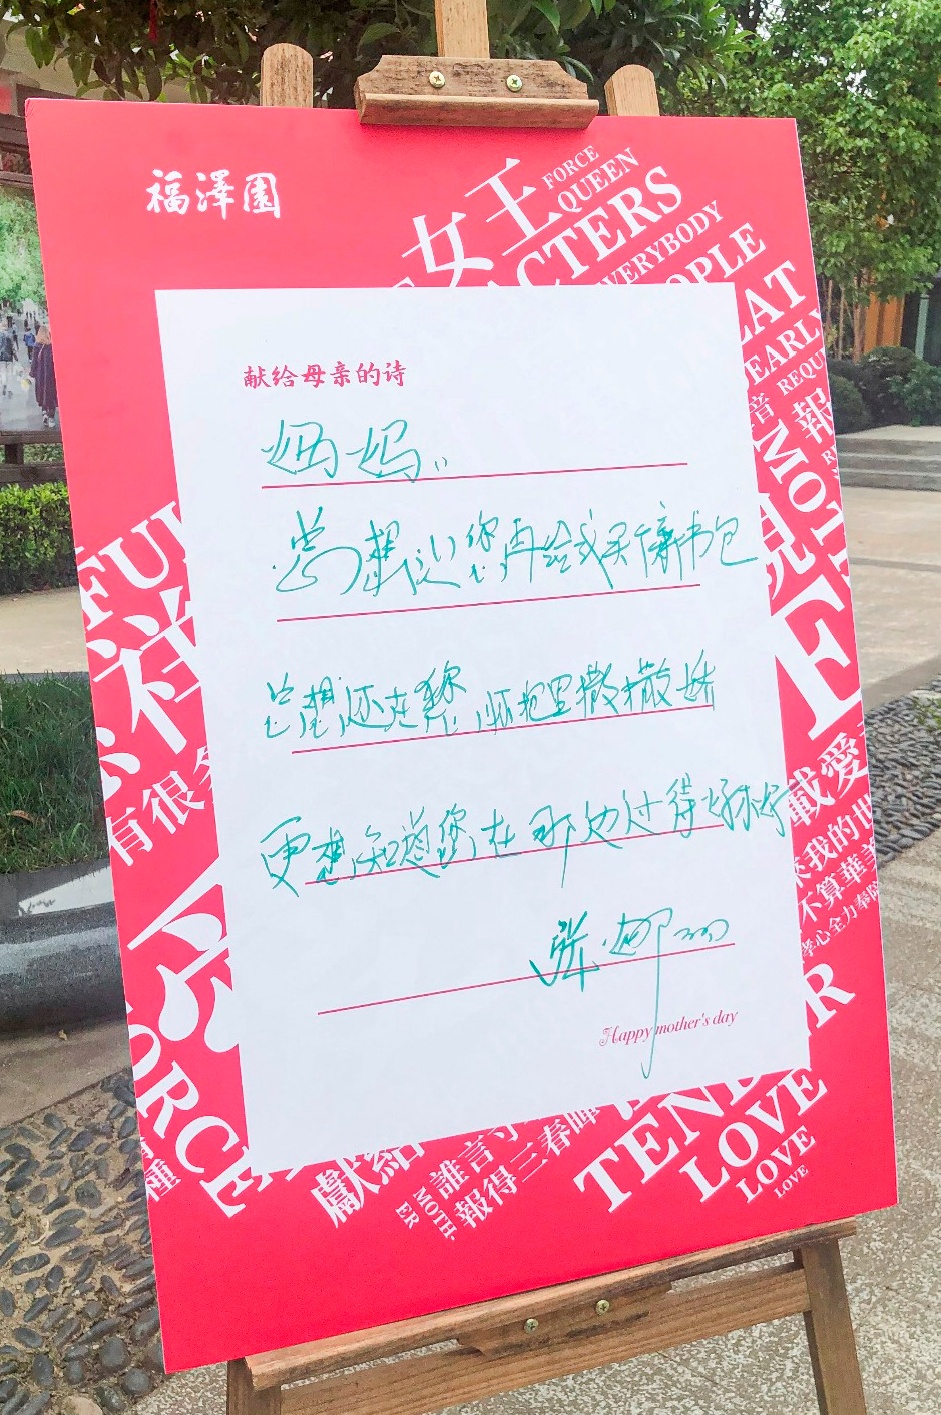 福澤園
女王
FORCE
QUEEN
CTERS
VERYBODY
OPLE
EAT
EARLY
REQU
音
報
献给母亲的诗
妈妈:
总想让您再给我买个新书包
总想还在您怀抱里撒撒娇
更想知道您在那边过得好不好
Happy mother's day
FUL
社
有很多
載愛
來我的世
不算華美
孝心全力奉陪
FORCE
種
獻給
MOTH-
ER
誰言寸
報得三春暉
TENDER
LOVE
LOVE
LOVE